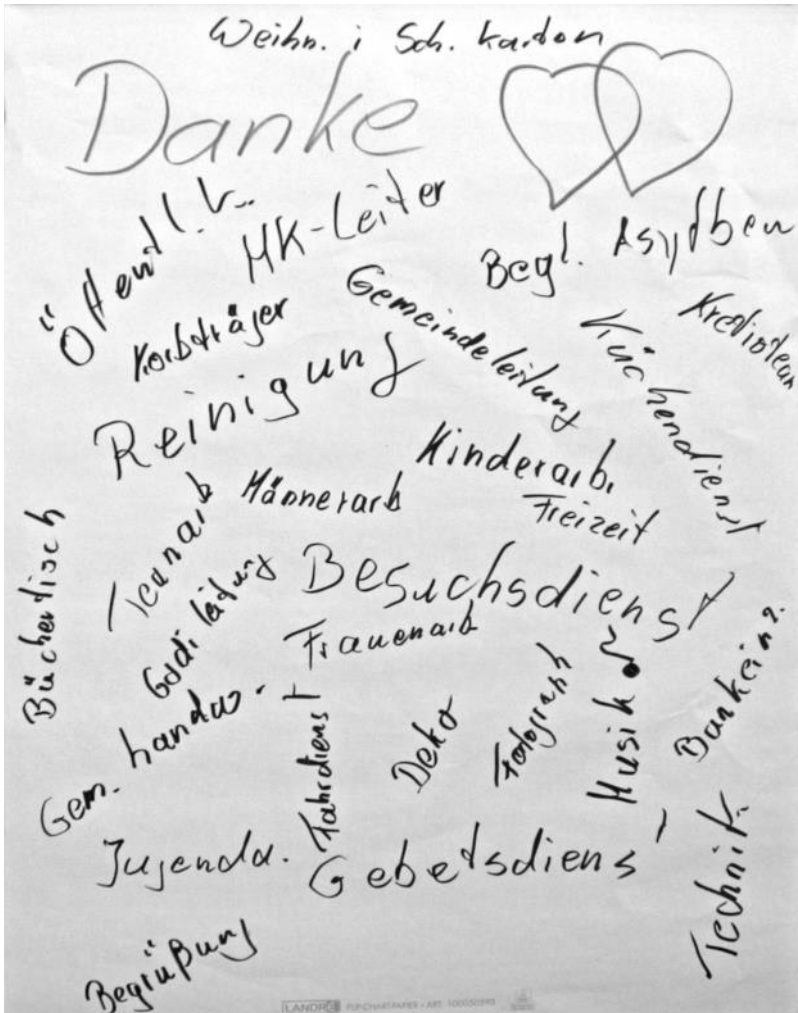 Weihn. i Sch. Karton
Danke
Öffentl.
HK-Leiter
Begl. Asylben
Korbträger
Gemeindeleitung
Kreativteam
Küchendienst
Reinigung
Kinderarb.
Männerarb
Freizeit
Büchertisch
Teenarb
Godi leitung
Besuchsdienst
Frauenarb
Gem. handw.
Fahrdienst
Deko
Fotograph
Musik
Bankeinz.
Jugenda.
Gebetsdienst
Technik
Begrüßung
LANDRÉ FLIPCHARTPAPER • ART.